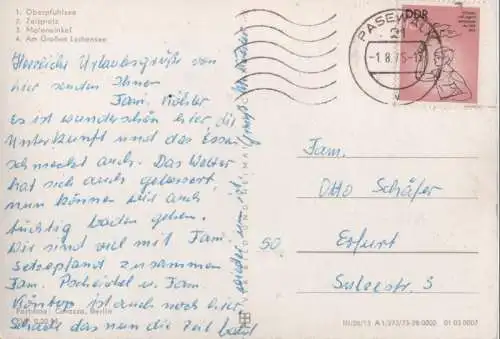 1. Oberpfuhlsee
2. Zeltplatz
3. Malerwinkel
4. Am Großen Lychensee
Herzliche Urlaubsgrüße von
hier senden Ihnen
Fam. Köhler
Es ist wunderschön hier die
Unterkunft und das Essen
schmeckt auch. Das Wetter
hat sich auch gebessert,
nun können wir auch
tüchtig baden gehen.
Wir sind viel mit Fam.
zusammen
Fam. und Fam.
ist auch noch hier
Schade das nun die Zeit bald
Farbfoto: Berlin
DDR
PASEWALK
-1.8.75-
Fam.
Otto Schäfer
50 Erfurt
Sulzestr. 3
III/26/13 A 1/272/75-28 0000 01 03 0007